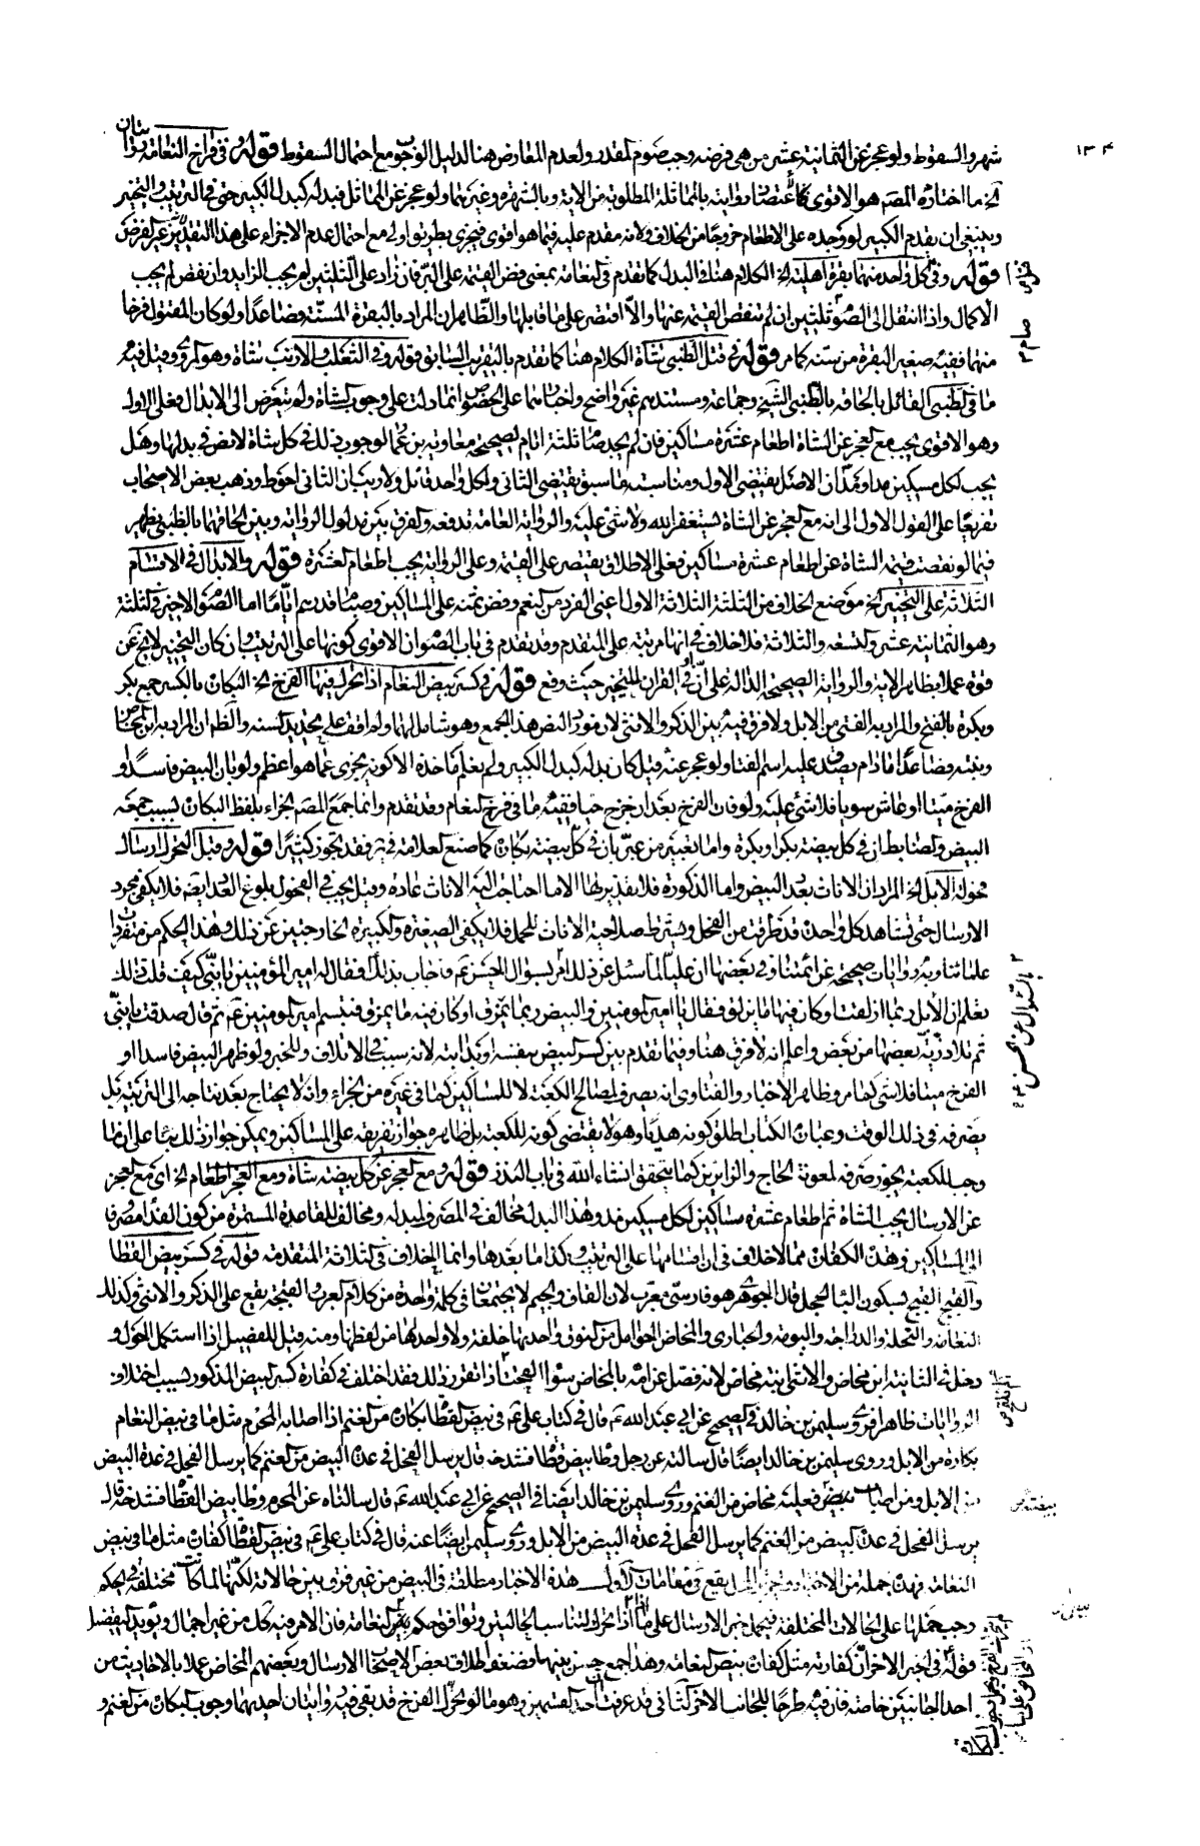 ١٣٤
شهر والسقوط ولو عجز عن الثمانية عشر من هى فرضه وجب صوم المقدور لعدم المعارض هنا لدليل الوجوب مع احتمال السقوط قوله وفى فراخ النعامة روايتان
الخ ما اختاره المصم هو الاقوى لاعتضاد روايته بالمماثلة المطلوبة من الاية وبالشهرة وغيرهما ولو عجز عن المماثل فبدله كبدل الكبير حتى فى الترتيب والتخيير
وينبغى ان يقدم الكبير لو وجده على الاطعام خروجا من الخلاف ولانه مقدم عليه فيما هو اقوى فيجزى بطريق اولى مع احتمال عدم الاجزاء على هذا التقدير
قوله وفى كل واحد منهما بقرة اهلية الخ الكلام هنا فى البدل كما تقدم فى النعامة بمعنى فض القيمة على البر فان زاد على الثلثين لم يجب الزايد وان نقص لم يجب
الاكمال واذا انتقل الى الصوم ثلثين ان لم تنقص القيمة عنها والا اقتصر على ما قابلها والظاهر ان المراد بالبقرة المسنة فصاعدا ولو كان المقتول فرخا
منها ففيه صغير البقرة من سنه كما مر قوله فى قتل الظبى شاة الكلام هنا كما تقدم بالتقريب السابق قوله وفى الثعلب والارنب شاة وهو المروى وقيل فيه
ما فى الظبى القائل بالحاقه بالظبى الشيخ وجماعة ومستندهم غير واضح واخبارهما على الخصوص انما دلت على وجوب الشاة ولم تتعرض الى الابدال فعلى الاول
وهو الاقوى يجب مع العجز عن الشاة اطعام عشرة مساكين فان لم يجد صام ثلثة ايام لصحيحة معاوية بن عمار الوجوب ذلك فى كل شاة لا نص فى بدلها وهل
يجب لكل مسكين مد او مدان الاصل يقتضى الاول ومناسبته ما سبق يقتضى الثانى ولكل واحد قائل ولا ريب ان الثانى احوط وذهب بعض الاصحاب
تفريعا على القول الاول الى انه مع العجز عن الشاة يستغفر الله ولا شئ عليه والرواية العامة تدفعه والفرق بين مدلول الرواية وبين الحاقهما بالظبى يظهر
فيما لو نقصت قيمة الشاة عن اطعام عشرة مساكين فعلى الاطلاق يقتصر على القيمة وعلى الرواية يجب اطعام العشرة قوله والابدال فى الاقسام
الثلاثة على التخيير الخ موضع الخلاف من الثلثة الثلاثة الاول اعنى الفرد من النعم وفض ثمنه على المساكين وصيام قدرهم اياما اما الصوم الاخير فى الثلثة
وهو الثمانية عشر والتسعة والثلاثة فلا خلاف فى انها مرتبة على المتقدم وقد تقدم فى باب الصوم ان الاقوى كونها على الترتيب وان كان التخيير لا يخ عن
قوة عملا بظاهر الاية والرواية الصحيحة الدالة على ان او فى القران للتخيير حيث وقع قوله فى كسر بيض النعام اذا تحرك فيها الفرخ الخ البكان بالكسر جمع بكر
وبكرة بالفتح والمراد به الفتى من الابل ولا فرق فيه بين الذكر والانثى لان مورد النص هذا الجمع وهو شامل لهما ولم اقف على تحديد لسنه والظاهر ان المراد به ابن المخاض
وبنته فصاعدا ما دام يصدق عليه اسم الفتا ولو عجز عنه قيل كان بدله كبدل الكبير ولم يعلم ماخذه الا كونه يجزى عما هو اعظم ولو بان البيض فاسدا او
الفرخ ميتا او عاش سويا فلا شئ عليه ولو مات الفرخ بعد ان خرج حيا ففيه ما فى فرخ النعام وقد تقدم وانما جمع المصم الجزاء بلفظ البكان بسبب جمعه
البيض والضابط ان فى كل بيضة بكرا او بكرة واما تعبير من عبر بان فى كل بيضة بكان كما صنع العلامة فى يه فقد تجوز كثيرا قوله وقبل التحرك ارسال
فحولة الابل الخ المراد ان الاناث بعدد البيض واما الذكورة فلا تقدير لها الا ما احتاجت اليه الاناث عادة وقيل يجب فى الفحول بلوغ العدد ايضه فلا يكفى مجرد
الارسال حتى تشاهد كل واحدة قد طرقت من الفحل ويشترط صلاحية الاناث للحمل فلا يكفى الصغيرة والكبيرة الخارجتين عن ذلك وهذا الحكم من متفردات
علمائنا وبه روايات صحيحة عن ائمتنا وفى بعضها ان عليا لما سئل عن ذلك امر بسؤال الحسن عم فاجاب بذلك فقال له امير المؤمنين يا بنى كيف قلت ذلك
تعلم ان الابل ربما ازلقت او كان فيها ما يزلق فقال يا امير المومنين والبيض ربما يمرق او كان فيه ما يمرق فتبسم امير المومنين عم ثم قال صدقت يا بنى
ثم تلا ذرية بعضها من بعض واعلم انه لا فرق هنا وفيما تقدم بين كسر البيض بنفسه او بدابته لانه سبب فى الاتلاف وللخبر ولو ظهر البيض فاسدا او
الفرخ ميتا فلا شئ كما مر وظاهر الاخبار والفتاوى انه يصرف لمصالح الكعبة لا للمساكين كما فى غيره من الجزاء وانه لا يحتاج بعد نتاجه الى التربية بل
يصرفه فى ذلك الوقت وعبارة الكتاب اطلق كونه هديا وهو لا يقتضى كونه للكعبة بل ظاهره جواز تفريقه على المساكين ويمكن جواز ذلك بناء على ان ما
وجب للكعبة يجوز صرفه لمعونة الحاج والزايرين كما يتحقق انشاء الله فى باب النذر قوله ومع العجز عن كل بيضة شاة ومع العجز اطعام الخ اى مع العجز
عن الارسال يجب الشاة ثم اطعام عشرة مساكين لكل مسكين مد وهذا البدل مخالف فى المصرف لمبدله ومخالف للقاعدة المستمرة من كون الفداء مصروفا
الى المساكين وهذه الكفارة مما لا خلاف فى ان اقسامها على الترتيب وكذا ما بعدها وانما الخلاف فى الثلاثة المتقدمة قوله فى كسر بيض القطا
والقبج القبج بسكون الباء الحجل قال الجوهرى هو فارسى معرب لان القاف والجيم لا يجتمعان فى كلمة واحدة من كلام العرب والقبجة تقع على الذكر والانثى وكذلك
النعامة والنحلة والدراجة والبومة والحبارى والمخاض الحوامل من النوق واحدتها خلفة ولا واحد لها من لفظها ومنه قيل للفصيل اذا استكمل الحول و
دخل فى الثانية ابن مخاض والانثى ابنة مخاض لانه فصل عن امه بالمخاض سواء لقحت اذا تقرر ذلك فقد اختلف فى كفارة كسر البيض المذكور بسبب اختلاف
الروايات ظاهرا فروى سليمن بن خالد فى الصحيح عن ابى عبد الله عم قال فى كتاب على عم فى بيض القطاة بكان من الغنم اذا اصابه المحرم مثل ما فى بيض النعام
بكارة من الابل وروى سليمن بن خالد ايضا قال سالته عن رجل وطا بيض قطا فشدخه قال يرسل الفحل فى عدة البيض من الغنم كما يرسل الفحل فى عدة البيض
من الابل ومن اصاب بيض فعليه مخاض من الغنم وروى سليمن بن خالد ايضا فى الصحيح عن ابى عبد الله عم قال سالناه عن المحرم وطا بيض القطا فشدخه قال
يرسل الفحل فى عدة البيض من الغنم كما يرسل الفحل فى عدة البيض من الابل وروى سليمن ايضا عنه قال فى كتاب على عم فى بيض القطا كفارة مثل ما فى بيض
النعامة فهذه جملة من الاخبار يقع فى مقامات الاول هذه الاخبار مطلقة فى البيض من غير فرق بين حالاته لكنها لما كانت مختلفة فى الحكم
وجب حملها على الحالات المختلفة فيحمل خبر الارسال على ما اذا تحرك لتناسب الحالتين وتوافق حكم بيض النعامة فان الامر فيه كل من غير اجمال ويؤيد التفصيل
قوله فى الخبر الاخر ان كفارته مثل كفارة بيض النعامة وهذا جمع حسن بينها وضعف اطلاق بعض الاصحاب الارسال وبعضهم المخاض عملا بالاحاديث من
احد الجانبين خاصة فان فيه طرحا للجانب الاخر الثانى قد عرفت احد القسمين وهو ما لو تحرك الفرخ قد بقى فيه روايتان احديهما وجوب البكان من الغنم و